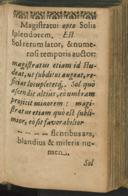 Magistratus apta Solis
splendorem, Est
Sol rerum lator, & nume-
rosi temporis auctor:
magistratus etiam id stu-
deat, ut subditos augeat, re-
ficiat locupletet. Sol quo
ascendit altius, eo umbram
projicit minorem : magi-
stratus etiam quo est subli-
mior, eo sit favorabilior
flentibus ars,
blandius & miseris nu-
men.
Sol